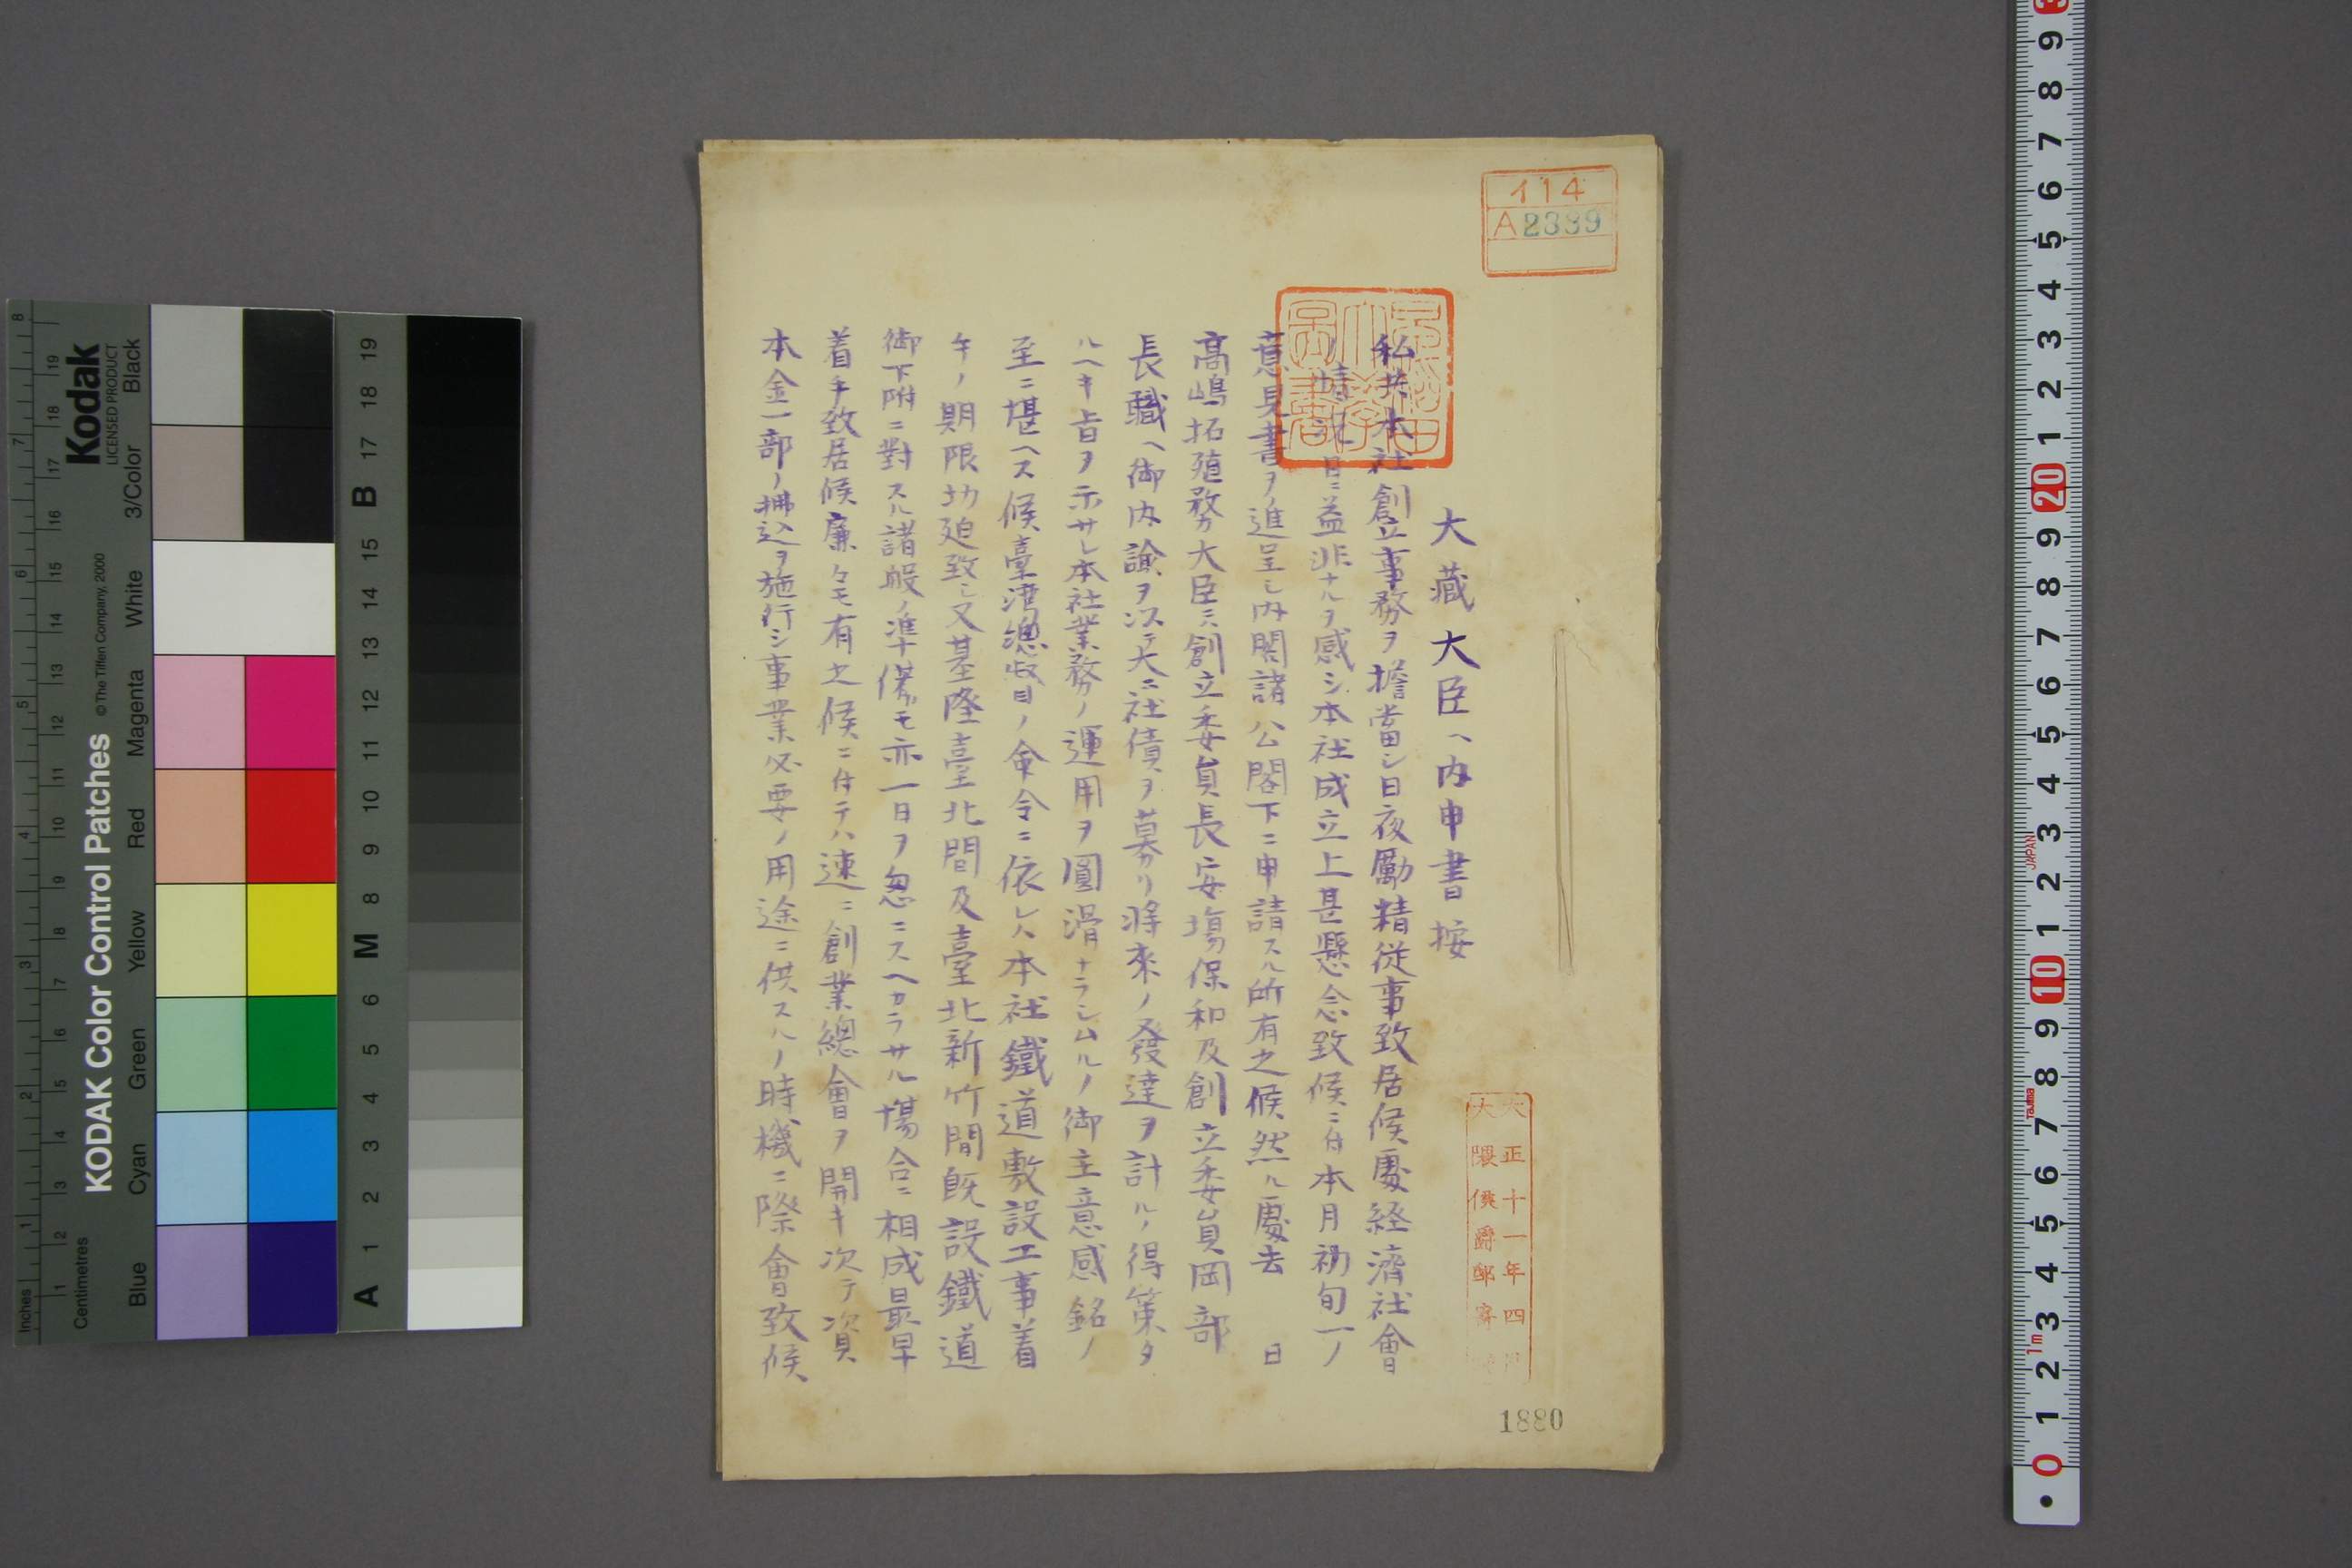 イ14
A2389
大藏大臣ヘ内申書按
私共本社創立事務ヲ擔當シ日夜勵精從事致居候處経濟社會
情況日ニ益非ナルヲ感シ本社成立上甚懸念致候ニ付本月初旬一ノ
意見書ヲ進呈シ内閣諸公閣下ニ申請スル所有之候然ル處去 日
髙嶋拓殖務大臣ニハ創立委員長安塲保和及創立委員岡部
長職ヘ御内諭ヲ以テ大ニ社債ヲ募リ將來ノ發達ヲ計ルノ得策タ
ルヘキ旨ヲ示サレ本社業務ノ運用ヲ圓滑ナラシムルノ御主意感銘ノ
至ニ堪ヘス候臺灣總督ノ命令ニ依レハ本社鐵道敷設工事着
手ノ期限切迫致シ又基隆臺北間及臺北新竹間既設鐵道
御下附ニ對スル諸般ノ準備モ亦一日ヲ忽ニスヘカラサル塲合ニ相成最早
着手致居候廉々モ有之候ニ付テハ速ニ創業總會ヲ開キ次テ資
本金一部ノ拂込ヲ施行シ事業必要ノ用途ニ供スルノ時機ニ際會致候
大正十一年四月
大隈侯爵邸寄贈
1880
Kodak
LICENSED PRODUCT
KODAK Color Control Patches
© The Tiffen Company, 2000
Inches
Centimetres
Blue
Cyan
Green
Yellow
Red
Magenta
White
3/Color
Black
A 1 2 3 4 5 6 M 8 9 10 11 12 13 14 15 B 17 18 19
JAPAN
Tajima
1m